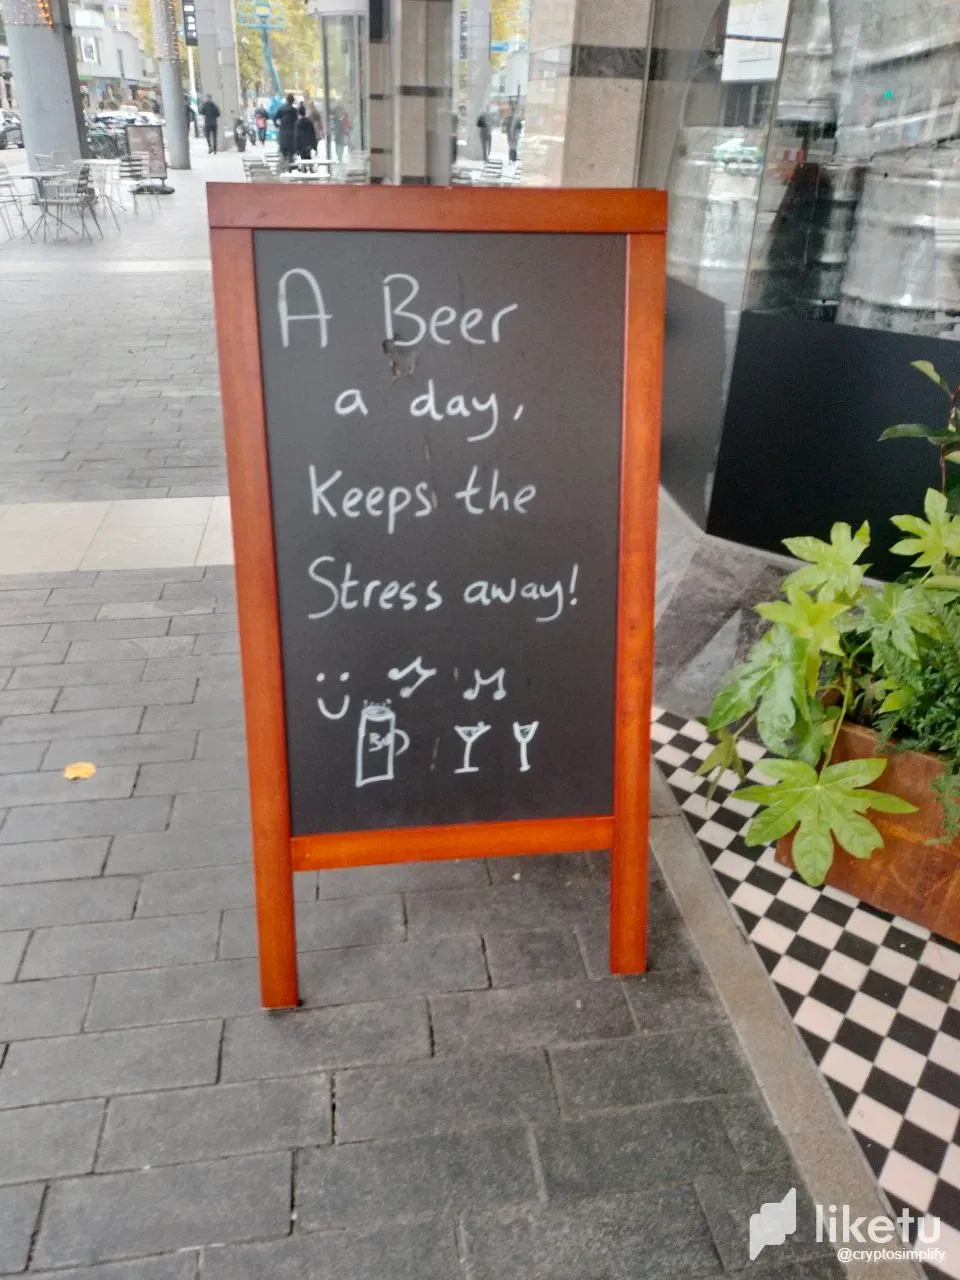 A Beer
a day,
Keeps the
Stress away!
liketu
@cryptosimplify